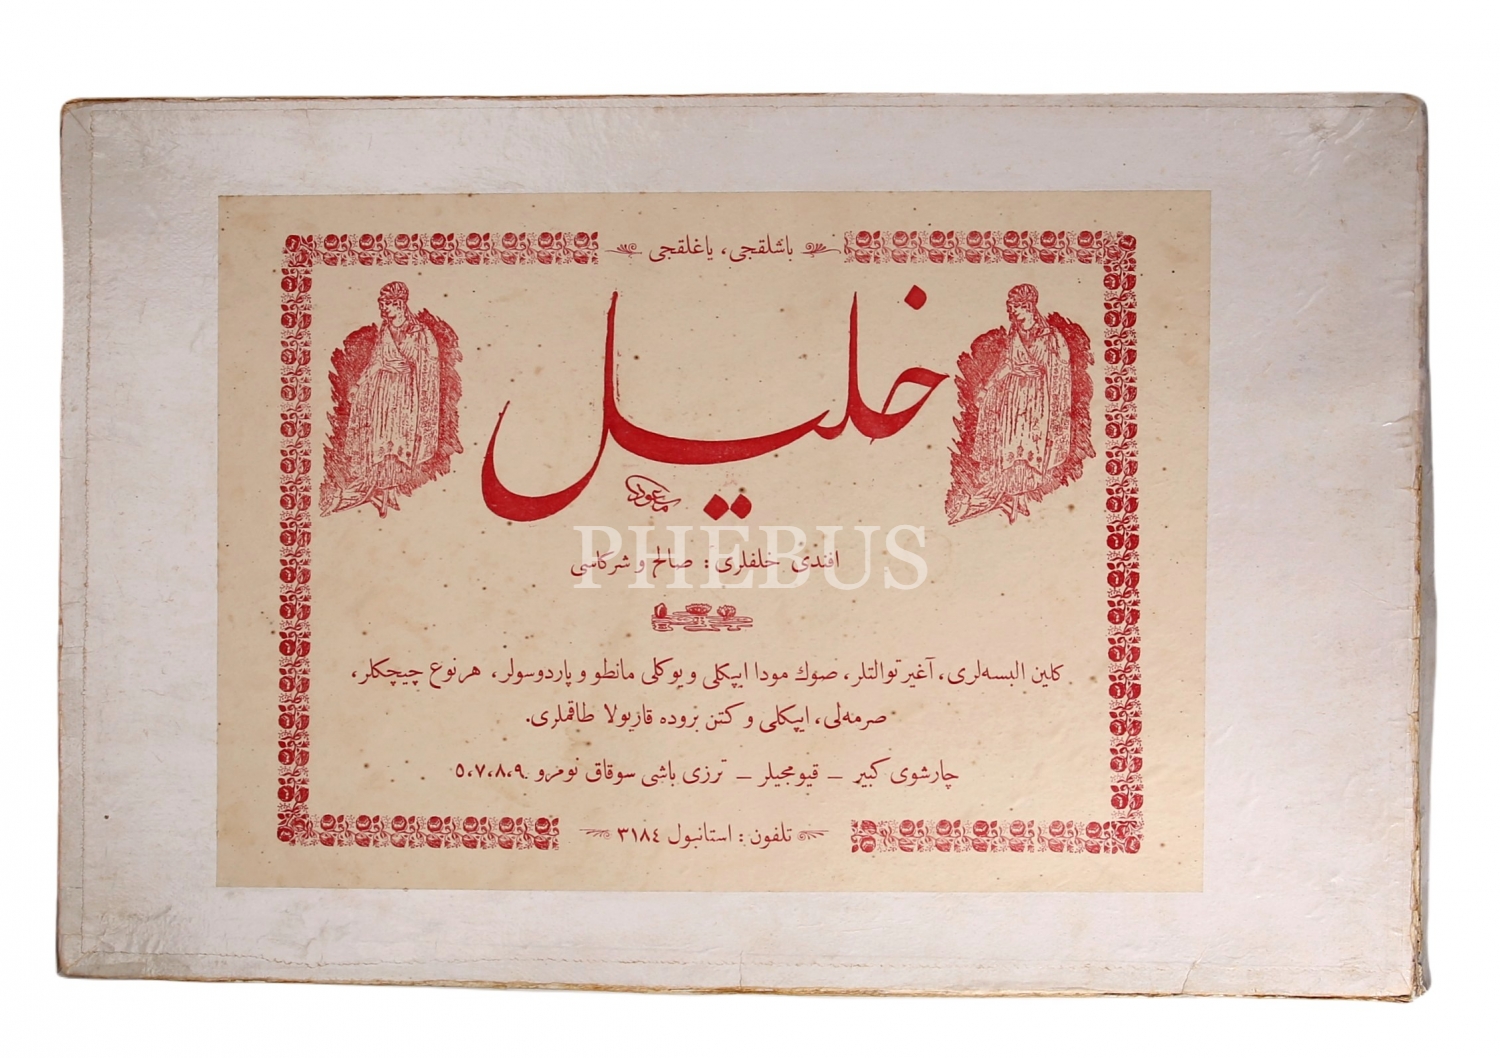 باشلقجی، یاغلقجی
خلیل
PHEBUS
افندی خلفلری: صالح و شرکاسی
کلین البسه‌لری، آغیر توالتلر، صوك مودا ایپکلی و یوکلی مانطو و پاردوسولر، هر نوع چیچکلر،
صرمه‌لی، ایپکلی و کتن بروده قاریولا طاقملری.
چارشوی کبیر ـ قیومجیلر ـ ترزی باشی سوقاق نومرو ٥،٧،٨،٩
تلفون: استانبول ٣١٨٤